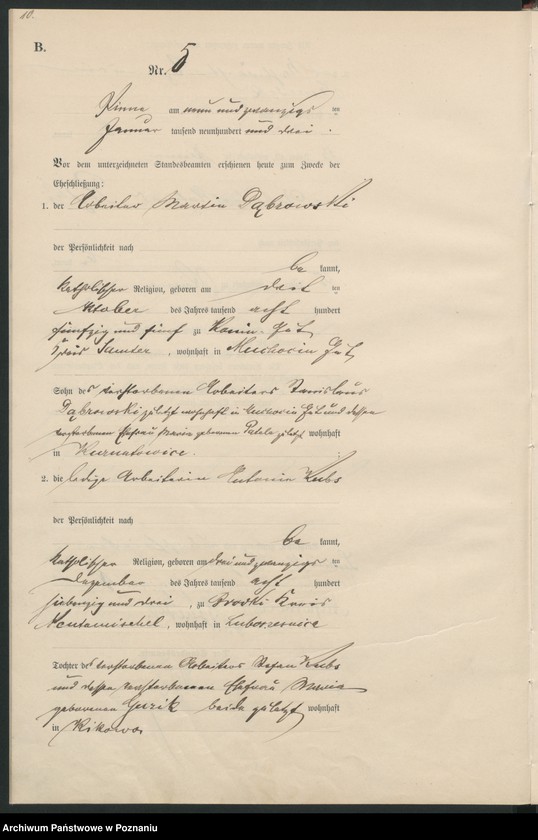 10.
B.
Nr. 5
Pinne am neun und zwanzigs ten
Januar tausend neunhundert und drei.
Vor dem unterzeichneten Standesbeamten erschienen heute zum Zwecke der
Eheschließung:
1. der Arbeiter Martin Dąbrowski
der Persönlichkeit nach
be kannt,
katholischer Religion, geboren am drit ten
Oktober des Jahres tausend acht hundert
fünfzig und fünf zu Konin-Gut
Kreis Samter, wohnhaft in Muchocin Gut
Sohn des verstorbenen Arbeiters Stanislaus
Dąbrowski zuletzt wohnhaft in Gut und dessen
verstorbenen Ehefrau Maria geborenen zuletzt wohnhaft
in Kurnatowice.
2. die ledige Arbeiterin Antonie Kubs
der Persönlichkeit nach
be kannt,
katholischer Religion, geboren am drei und zwanzigs ten
Dezember des Jahres tausend acht hundert
siebenzig und drei, zu Brodki Kreis
Neutomischel, wohnhaft in Lubosresnice
Tochter des verstorbenen Arbeiters Stefan Kubs
und dessen verstorbenen Ehefrau Maria
geborenen beide zuletzt wohnhaft
in Kikowo.
Archiwum Państwowe w Poznaniu